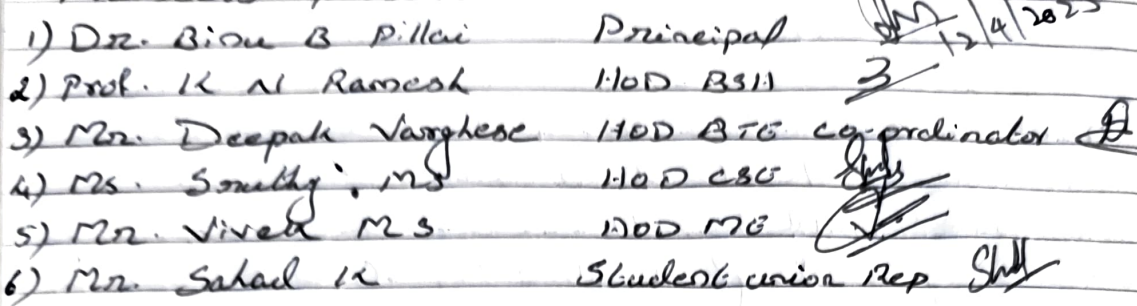 1) Dr. Binu B Pillai Principal 12/4/202
2) Prof. K N Ramesh HOD BSH
3) Mr. Deepak Varghese HOD BTE co-ordinator
4) Ms. Smithy. MS HOD CSE
5) Mr. Vivek MS HOD ME
6) Mr. Sahad K Student union Rep